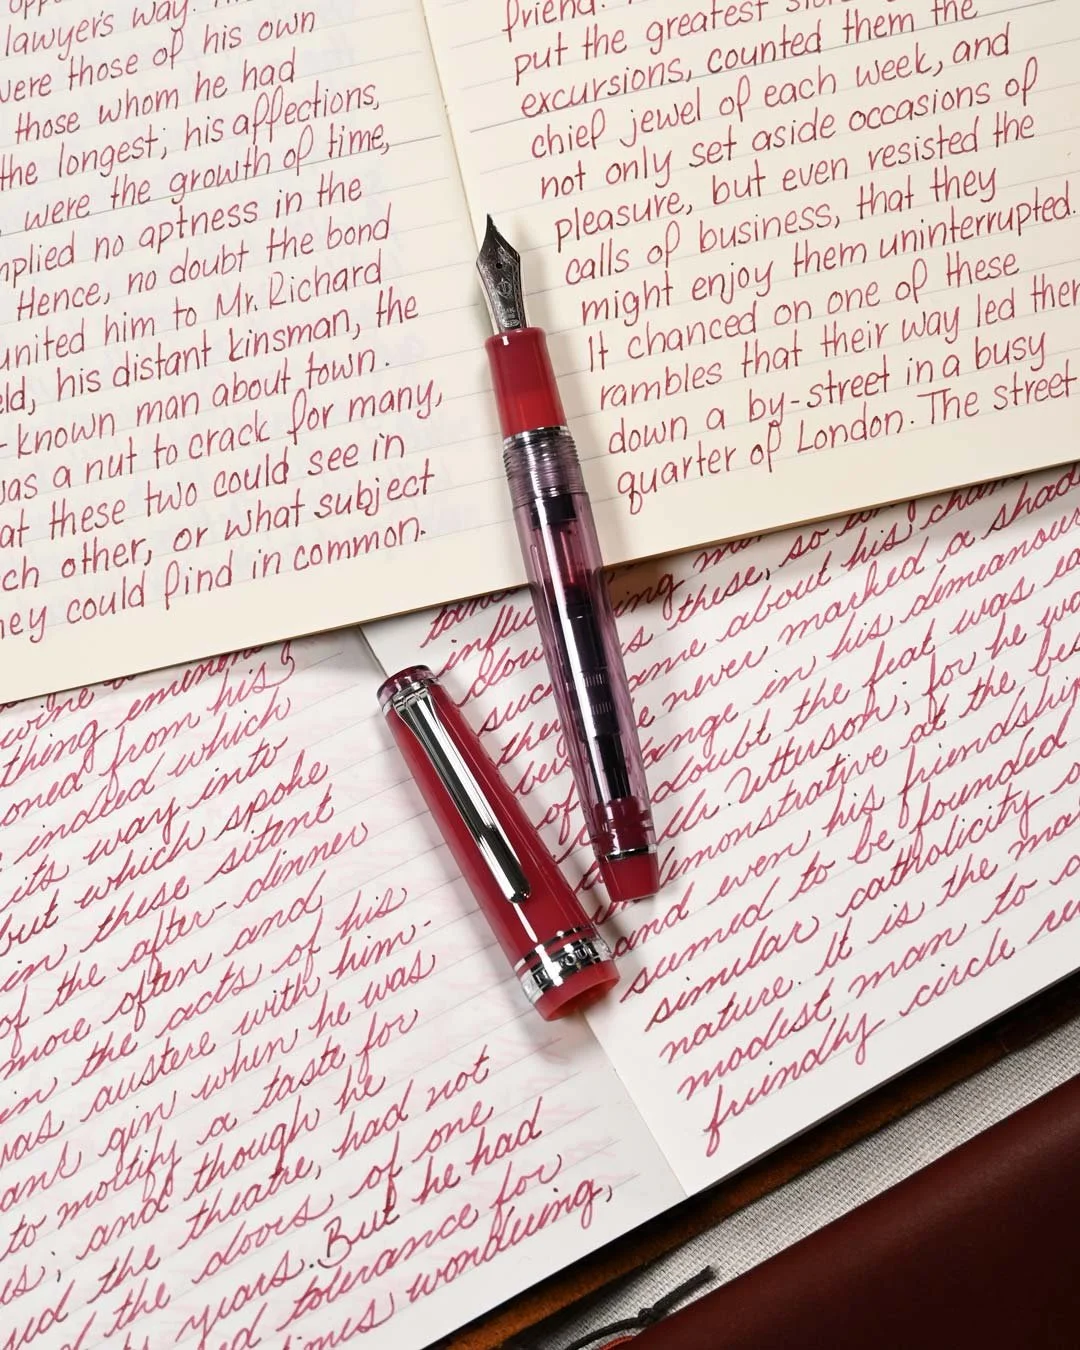 lawyer's way.
were those of his own
those whom he had
the longest; his affections,
were the growth of time,
mplied no aptness in the
Hence, no doubt the bond
united him to Mr. Richard
eld, his distant kinsman, the
-known man about town.
was a nut to crack for many,
at these two could see in
ch other, or what subject
hey could find in common.
friend.
put the greatest
excursions, counted them the
chief jewel of each week, and
not only set aside occasions of
pleasure, but even resisted the
calls of business, that they
might enjoy them uninterrupted.
It chanced on one of these
rambles that their way led them
down a by-street in a busy
quarter of London. The street
wine
thing eminently
oned from his
indeed which
its way into
but which spoke
in these silent
of the after-dinner
more often and
in the acts of his
was austere with him-
ank gin when he was
to mortify a taste for
s; and though he
yed the theatre, had not
the doors of one
years. But he had
ed tolerance for
imes wondering,
these, so
ame about his
he never marked a shade
ange in his demeanour
doubt the feat was ea
Mr. Utterson; for he wa
demonstrative at the bes
and even his friendship
sumed to be founded
similar catholicity o
nature. It is the ma
modest man to a
friendly circle re